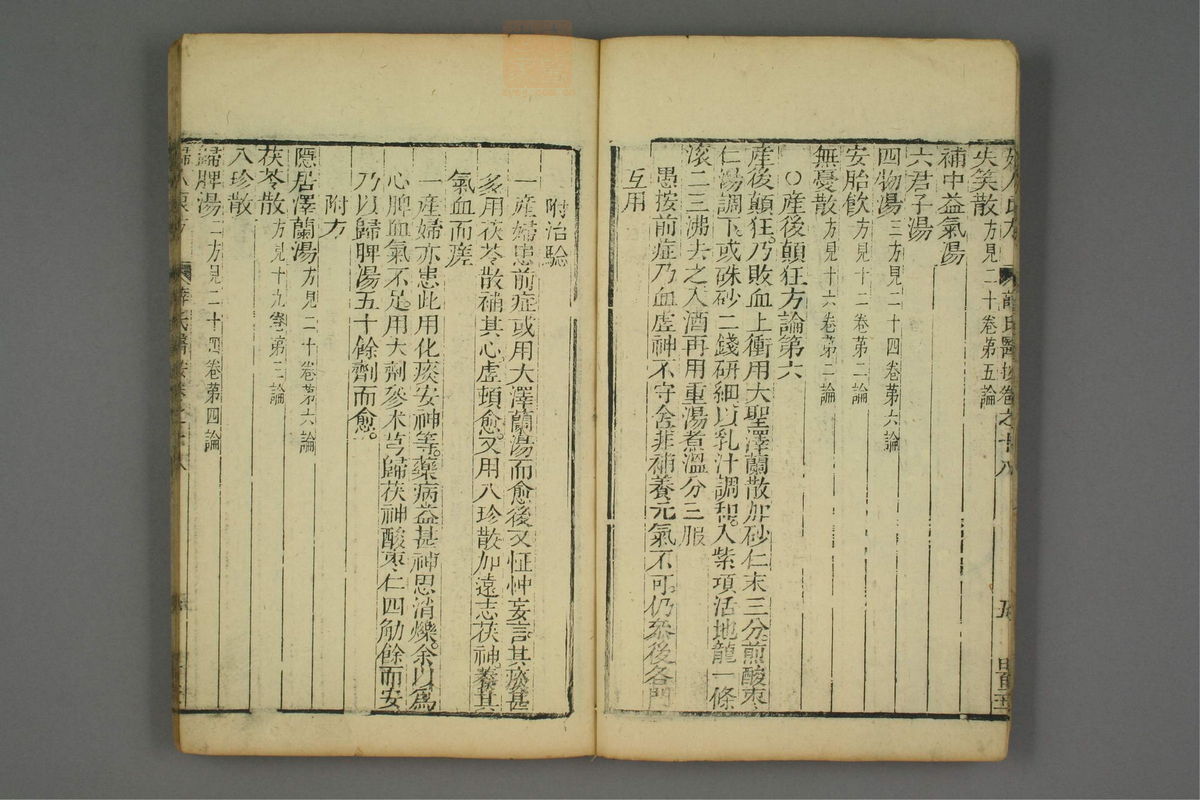 失笑散方見二十卷第五論
補中益氣湯
六君子湯
四物湯二方見二十四卷第六論
安胎飲方見十二卷第二論
無憂散方見十六卷第二論
○產後顛狂方論第六
產後顛狂乃敗血上衝用大聖澤蘭散加砂仁末三分煎酸棗
仁湯調下或硃砂二錢研細以乳汁調和入紫項活地龍一條
滚二三沸去之入酒再用重湯煮溫分三服
愚按前症乃血虚神不守舍非補養元氣不可仍叅後各門
互用
附治驗
一產婦患前症或用大澤蘭湯而愈後又怔忡妄言其痰甚
多用茯苓散補其心虚頓愈又用八珍散加遠志茯神養其
氣血而瘥
一產婦亦患此用化痰安神等藥病益甚神思消爍余以爲
心脾血氣不足用大劑參术芎歸茯神酸棗仁四觔餘而安
乃以歸脾湯五十餘劑而愈
附方
隱居澤蘭湯方見二十卷第六論
茯苓散方見十九卷第三論
八珍散
歸脾湯二方見二十四卷第四論